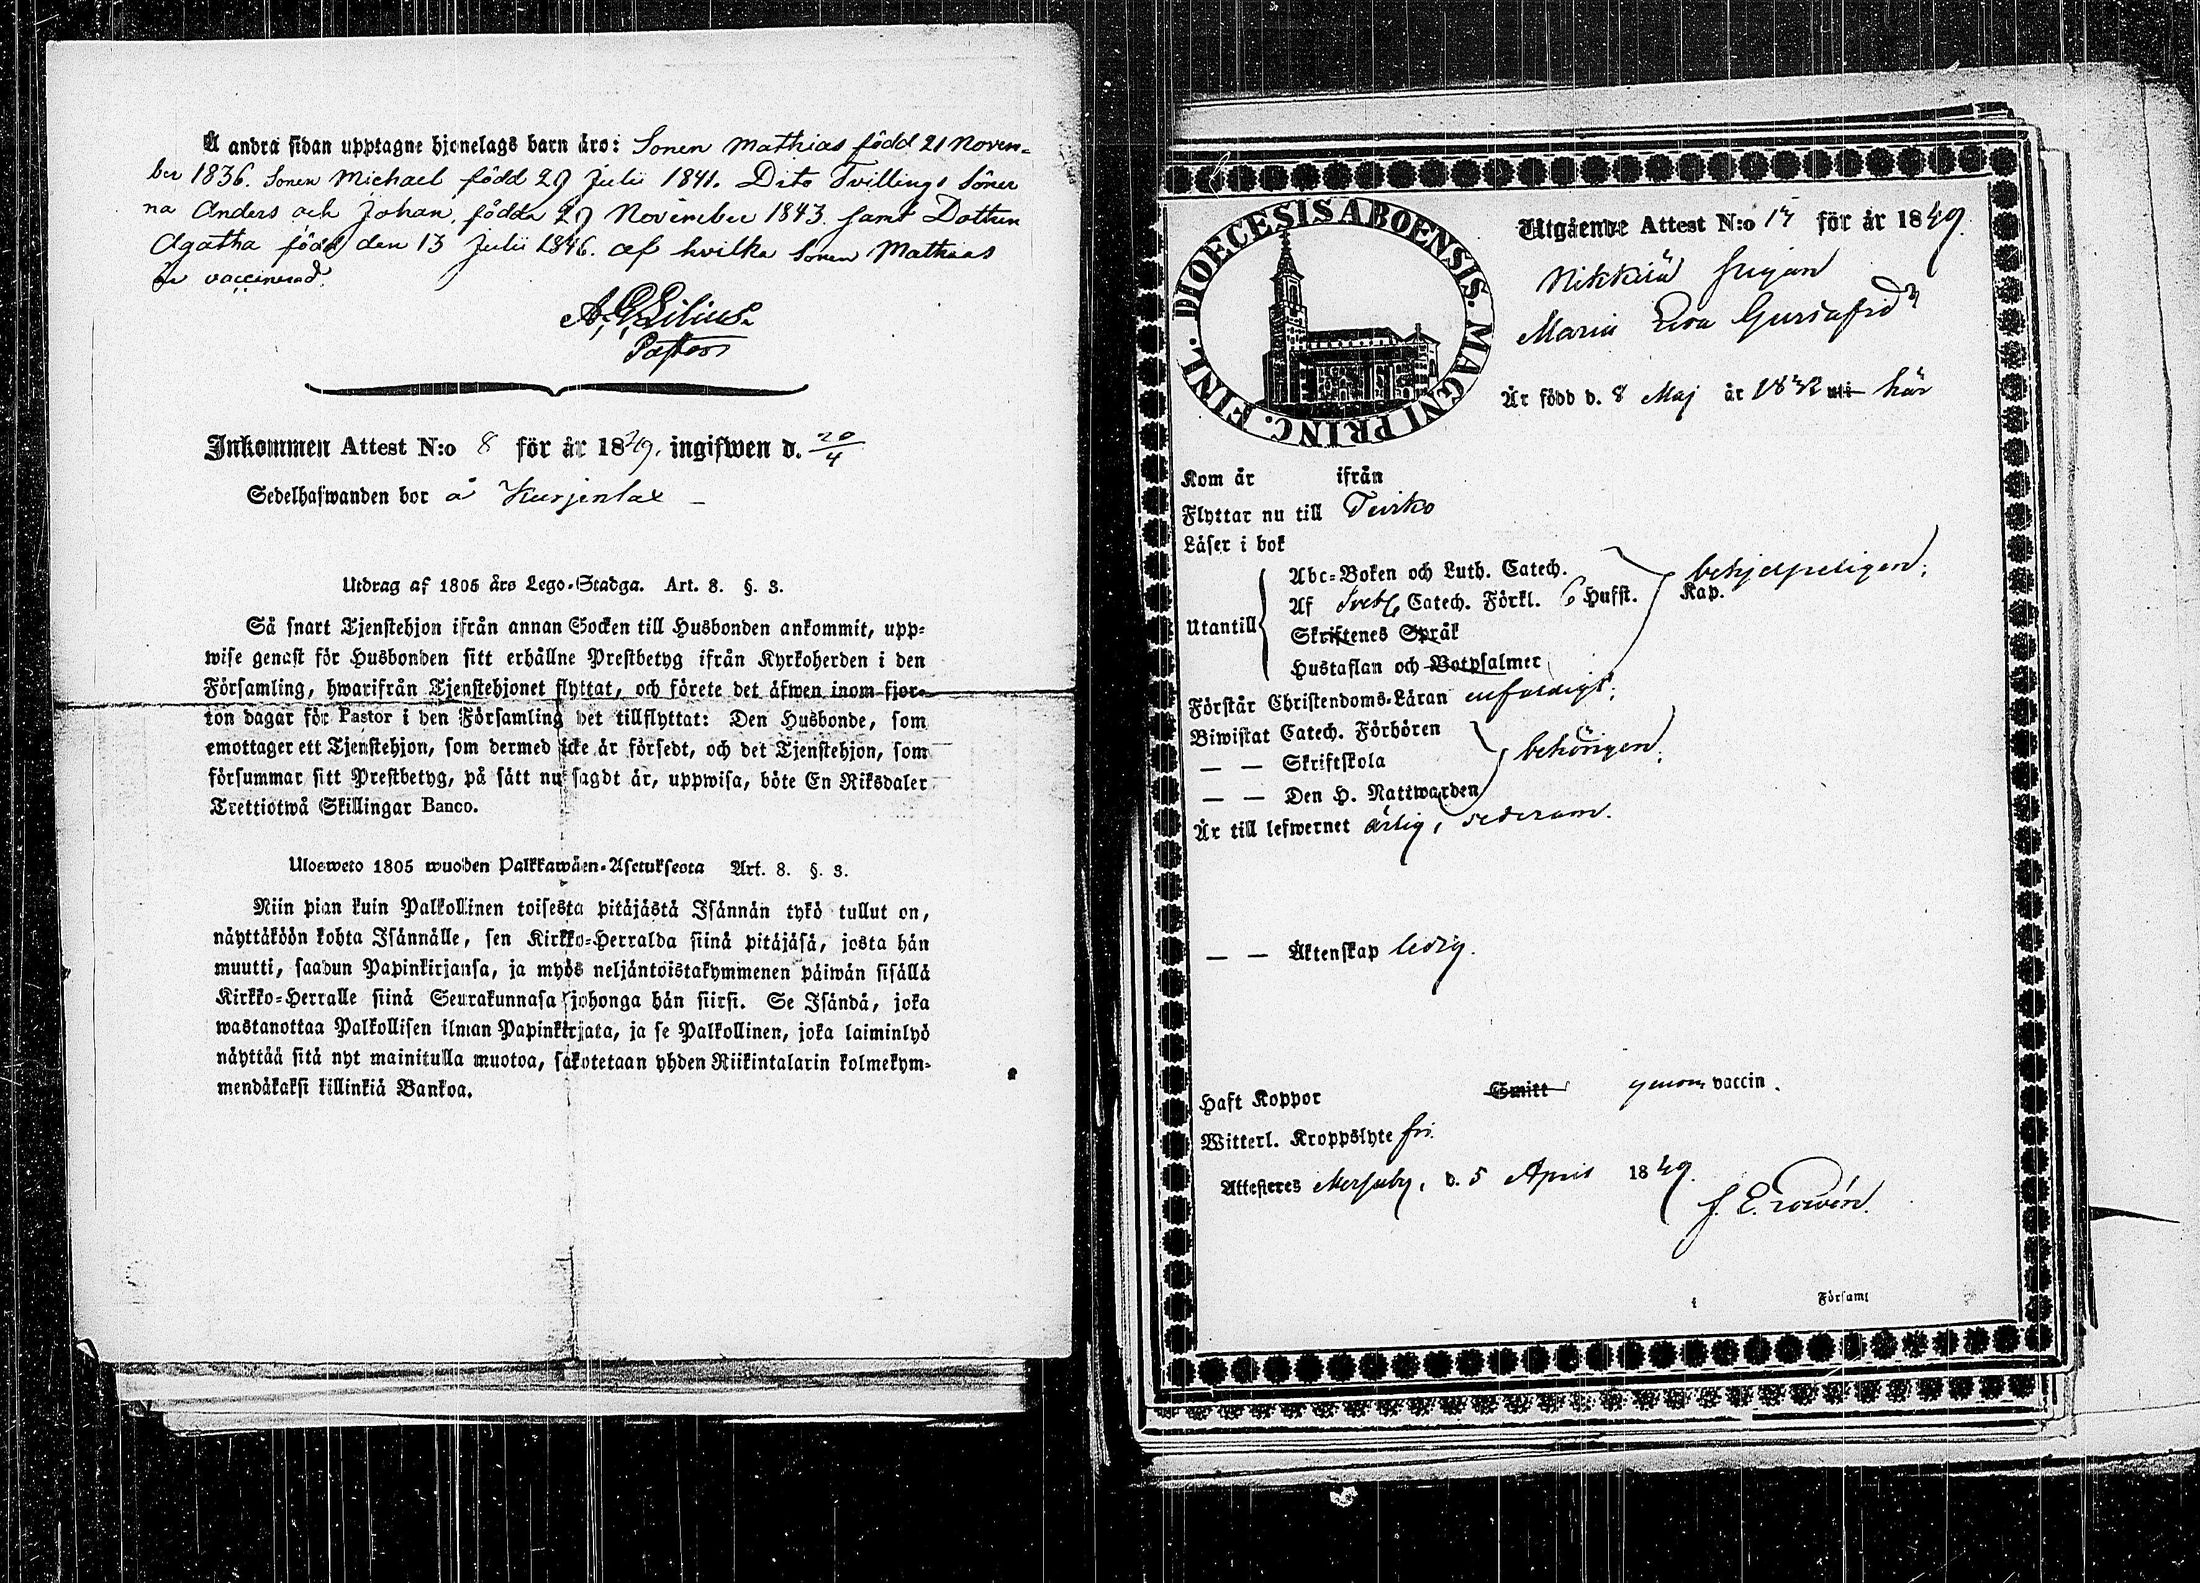 Å andra sidan upptagne hjonelags barn äro: Sonen Mathias född 21 Novem=
ber 1836. Sonen Michael född 29 Julii 1841. Dito Tvillings Söner
na Anders och Johan, födda 29 November 1843. samt Dottren
Agatha född den 13 Julii 1846. af hvilka Sonen Mathias
är vaccinerad.
A. G. Lilius.
Pastor
Inkommen Attest N:o 8 för år 1849. ingifwen d. 20/4
Sedelhafwanden bor å Kurjenlax
Utdrag af 1805 års Lego-Stadga. Art. 8. §. 3.
Så snart Tjenstehjon ifrån annan Socken till Husbonden ankommit, upp=
wise genast för Husbonden sitt erhållne Prestbetyg ifrån Kyrkoherden i den
Församling, hwarifrån Tjenstehjonet flyttat, och förete det äfwen inom fjor=
ton dagar för Pastor i den Församling det tillflyttat: Den Husbonde, som
emottager ett Tjenstehjon, som dermed icke är försedt, och det Tjenstehjon, som
försummar sitt Prestbetyg, på sätt nu sagdt är, uppwisa, böte En Riksdaler
Trettiotwå Skillingar Banco.
Ulosweto 1805 wuoden Palkkawäen-Asetuksesta Art. 8. §. 3.
Niin pian kuin Palkollinen toisesta pitäjästä Isännän tykö tullut on,
näyttäköön kohta Isännälle, sen Kirkko=Herralda siinä pitäjäsä, josta hän
muutti, saadun Papinkirjansa, ja myös neljäntoistakymmenen päiwän sisällä
Kirkko=Herralle siinä Seurakunnasa johonga hän siirsi. Se Isändä, joka
wastanottaa Palkollisen ilman Papinkirjata, ja se Palkollinen, joka laiminlyö
näyttää sitä nyt mainitulla muotoa, sakotetaan yhden Riikintalarin kolmekym-
mendäkaksi killinkiä Bankoa.
DIOECESIS ABOENSIS. MAGNI PRINC. FINL.
Utgående Attest N:o 17 för år 1849.
Nikkilä Pigan
Maria Eva Gustafsdr
Är född d. 8 Maj år 1832 uti här
Kom år ifrån
Flyttar nu till
Läser i bok
Abc=Boken och Luth. Catech. behjelpeligen;
Utantill Af Svebf. Catech. Förkl. 6 Hufst. Kap.
Skriftenes Språk
Hustaflan och Botpsalmer
Förstår Christendoms-Läran enfaldigt;
Biwistat Catech. Förhören
— — Skriftskola behörigen;
— — Den H. Nattwarden
Är till lefwernet ärlig, sedesam.
— — Äktenskap ledig.
Haft Koppor Smitt genom vaccin.
Witterl. Kroppslyte fri.
Attesteres d. 5 April 1849.
i Församl